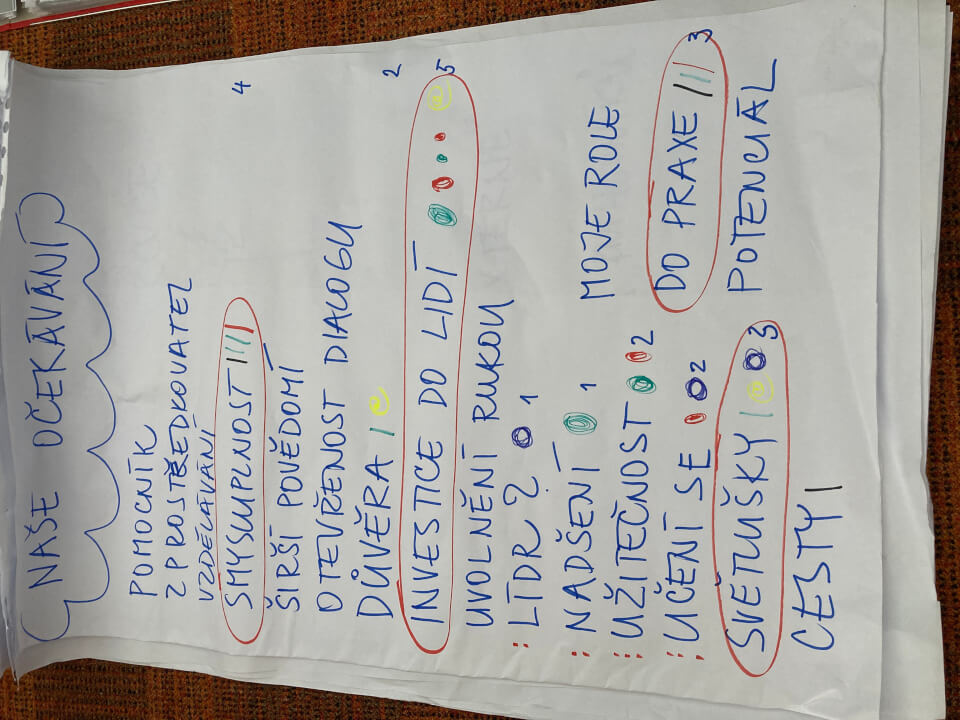 NAŠE OČEKÁVÁNÍ
POMOCNÍK
ZPROSTŘEDKOVATEL
VZDĚLÁVÁNÍ
SMYSLUPLNOST 4
ŠIRŠÍ POVĚDOMÍ
OTEVŘENOST DIALOGU
DŮVĚRA 2
INVESTICE DO LIDÍ 5
UVOLNĚNÍ RUKOU
LÍDR? 1
NADŠENÍ 1 MOJE ROLE
UŽITEČNOST 2
UČENÍ SE 2 DO PRAXE 3
SVĚTUŠKY 3 POTENCIÁL
CESTY